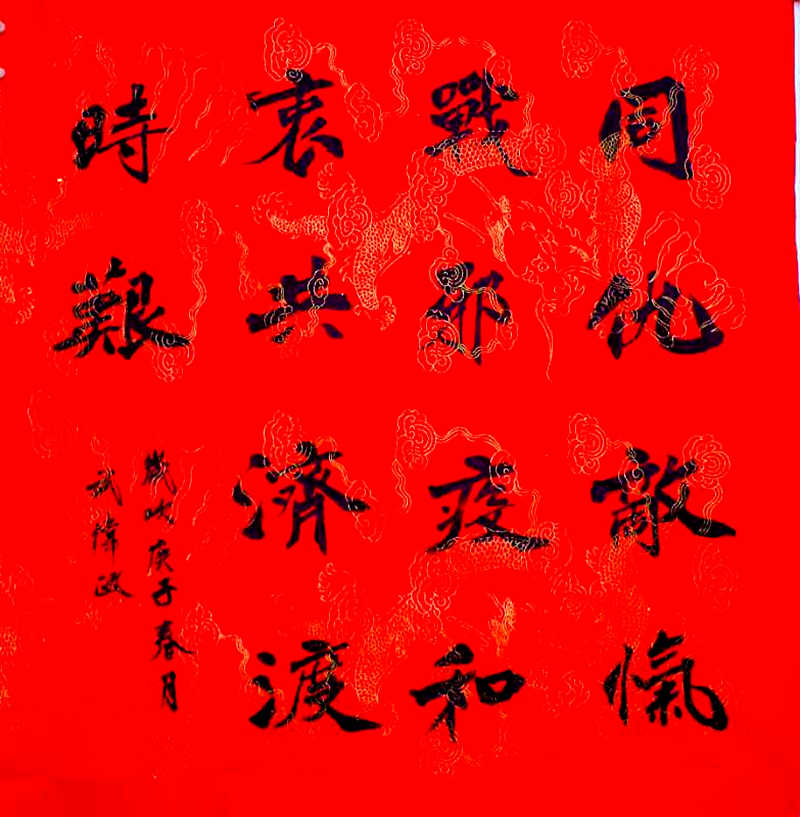 同仇敵愾
戰邪疫和
衷共濟渡
時艱
歲次庚子春月
武偉政